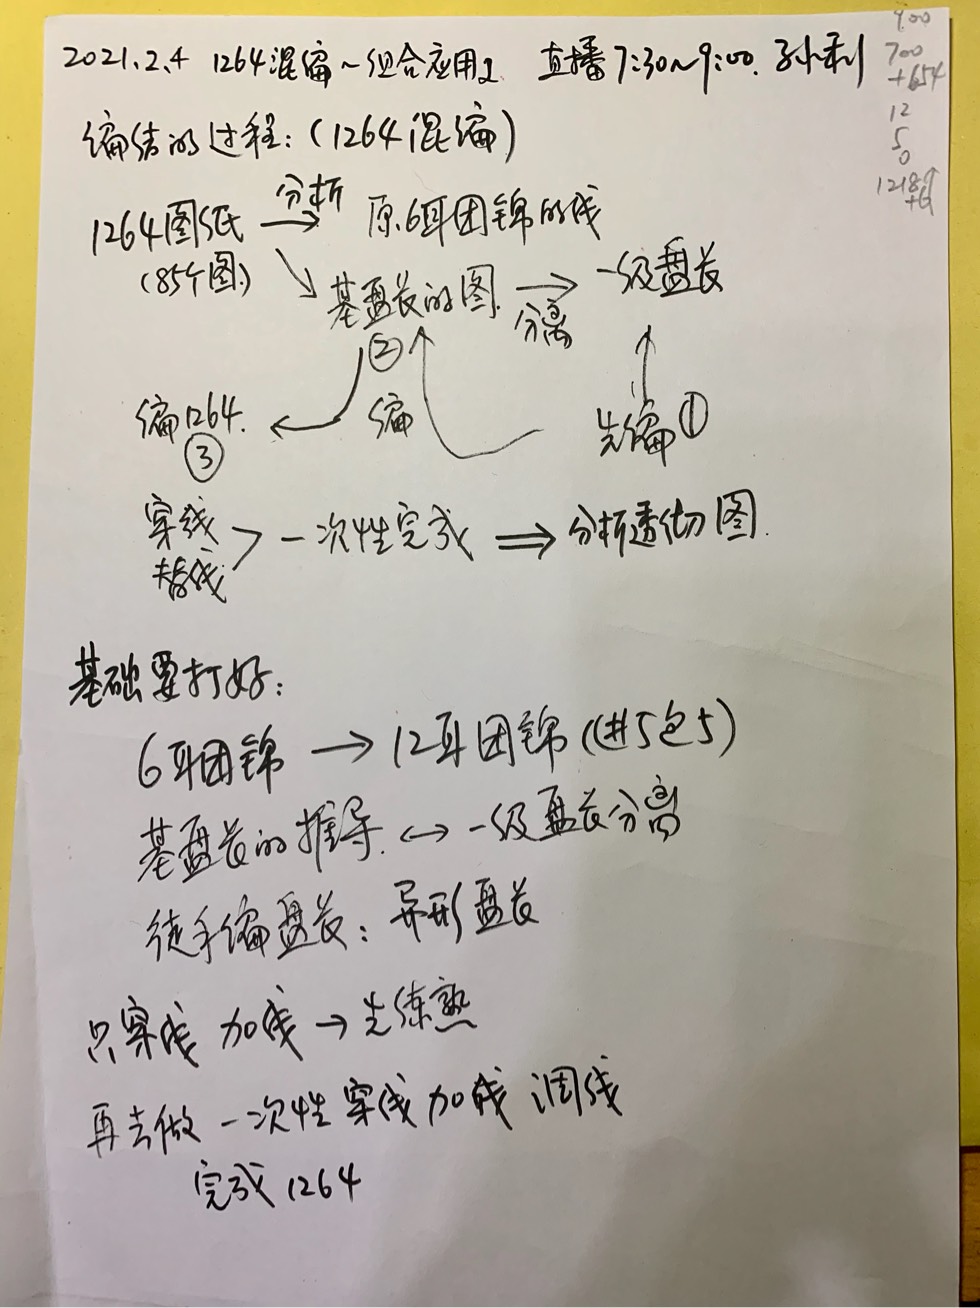 2021.2.4 1264混编~组合应用2 直播7:30~9:00. 孙利
900
700
+654
12
5
0
1218个
编结的过程:(1264混编)
1264图纸 分析 原.6耳团锦的线
(85个图.)
基盘长的图. 分离 一级盘长
②
编1264. 编 先编①
③
穿线
替线 一次性完成 ⇒ 分析透彻图.
基础要打好:
6耳团锦 → 12耳团锦(进5包5)
基盘长的推导. ↔ 一级盘长分离
徒手编盘长: 异形盘长
只穿线 加线→先练熟
再去做 一次性穿线加线 调线
完成1264